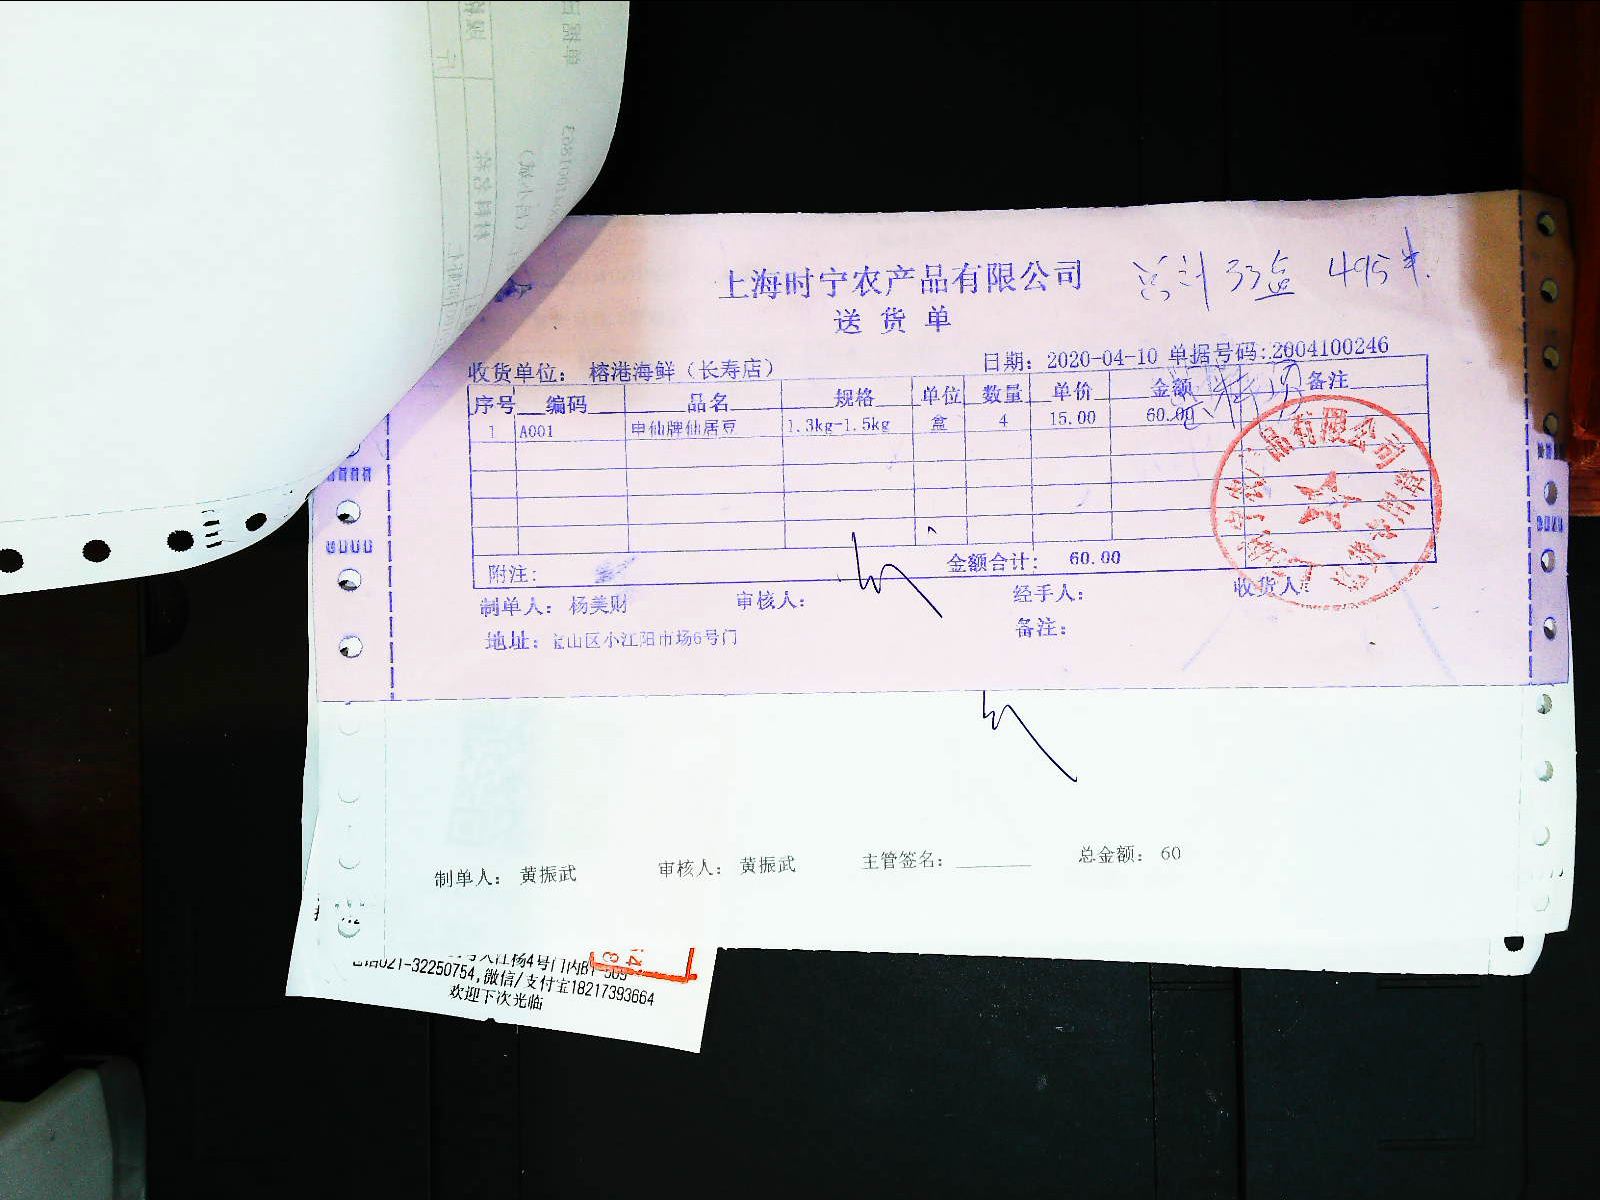 上海时宁农产品有限公司
总计 33盒 495元.
送货单
收货单位： 榕港海鲜（长寿店）
日期： 2020-04-10 单据号码：2004100246
序号 编码 品名 规格 单位 数量 单价 金额 备注
1 A001 申仙牌仙居豆 1.3kg-1.5kg 盒 4 15.00 60.00
附注： 金额合计： 60.00
制单人： 杨美财 审核人： 经手人： 收货人：
地址：宝山区小江阳市场6号门 备注：
制单人： 黄振武 审核人： 黄振武 主管签名： 总金额： 60
江杨4号门内
021-32250754,微信/支付宝18217393664
欢迎下次光临